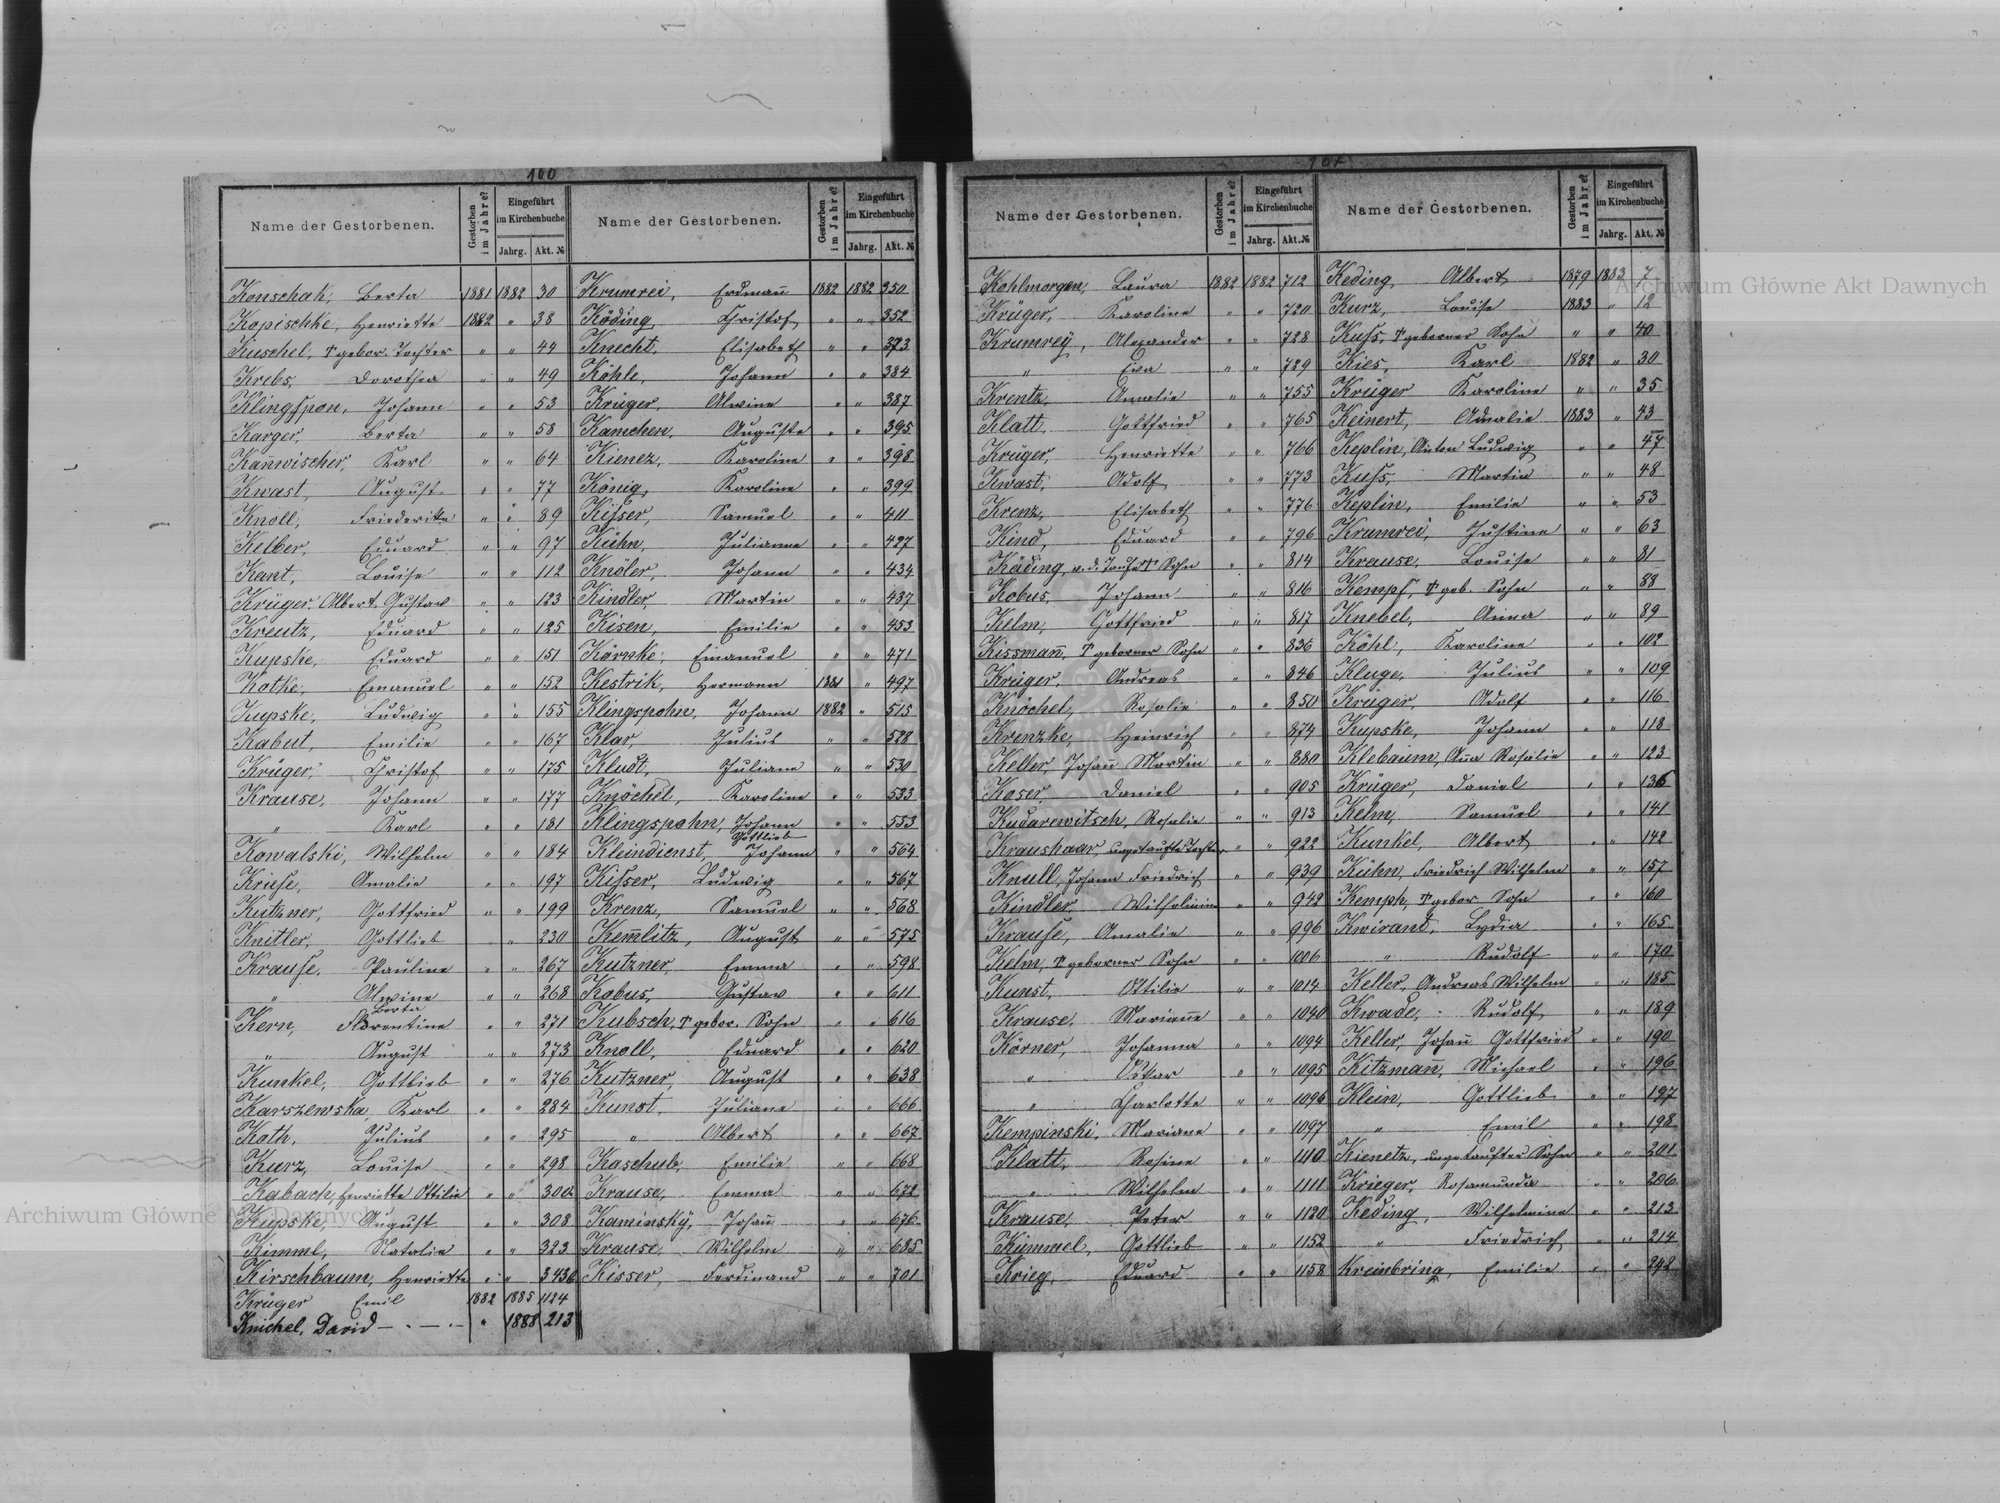 100
Name der Gestorbenen.
Gestorben im Jahre?
Eingeführt im Kirchenbuche
Jahrg. Akt. №
Konschak, Berta 1881 1882 30
Kopischke, Henriette 1882 " 38
Kuschel, † gebor. Tochter " " 44
Krebs, Dorothea " " 49
Klingspon, Johann " " 53
Karger, Berta " " 58
Kan̄wischer, Karl " " 64
Kwast, August " " 77
Knoll, Friederike " " 89
Kelber, Eduard " " 97
Kant, Louise " " 112
Krüger, Albert Gustav " " 123
Kreutz, Eduard " " 125
Kupske, Eduard " " 151
Kotke, Emanuel " " 152
Kupske, Ludwig " " 155
Kabut, Emilie " " 167
Krüger, Christof " " 175
Krause, Johann " " 177
" Karl " " 181
Kowalski, Wilhelm " " 184
Kruse, Amalie " " 197
Kutzner, Gottfried " " 199
Knitler, Gottlieb " " 230
Krause, Pauline " " 267
" Alwine " " 268
Kern, Berta Florentine " " 271
" August " " 273
Kunkel, Gottlieb " " 276
Karszewska Karl " " 284
Kath, Julius " " 295
Kurz, Louise " " 298
Kabach, Henriette Ottilie " " 300
Kupske, August " " 308
Kimml, Natalie " " 323
Kirschbaum, Henriette " "
Krüger Emil 1882 1885 1124
Knichel, David " 1888 213
Name der Gestorbenen.
Gestorben im Jahre?
Eingeführt im Kirchenbuche
Jahrg. Akt. №
Krumrei, Erdman̄ 1882 1882 350
Köding, Christof " " 352
Knecht, Elisabeth " " 373
Köhle, Johann " " 384
Krüger, Alwine " " 387
Kamchen, Auguste " " 395
Kienez, Karoline " " 398
König, Karoline " " 399
Kisser, Samuel " " 411
Kühn, Julianne " " 427
Knöler, Johann " " 434
Kindler, Martin " " 437
Kisen, Emilie " " 453
Körnke, Emanuel " " 471
Kestrik, Hermann 1881 " 497
Klingspohn, Johann 1882 " 515
Klar, Julius " " 528
Kludt, Juliane " " 530
Knöchel, Karoline " " 533
Klingspahn, Johann Gottlieb " " 553
Kleindienst, Johann " " 564
Kisser, Ludwig " " 567
Krenz, Samuel " " 568
Kem̄litz, August " " 575
Kutzner, Emma " " 598
Kobus, Gustav " " 611
Kubsch, † gebor. Sohn " " 616
Knoll, Eduard " " 620
Kutzner, August " " 638
Kunst, Juliane " " 666
" Albert " " 667
Kaschub, Emilie " " 668
Krause, Emma " " 672
Kaminsky, Johan̄ " " 676
Krause, Wilhelm " " 685
Kisser, Ferdinand " " 701
101
Name der Gestorbenen.
Gestorben im Jahre?
Eingeführt im Kirchenbuche
Jahrg. Akt. №
Kohlmorgen, Laura 1882 1882 712
Krüger, Karoline " " 720
Krumrey, Alexander " " 728
" Eva " " 729
Krentz, Amalie " " 755
Klatt, Gottfried " " 765
Krüger, Henriette " " 766
Kwast, Adolf " " 773
Krenz, Elisabeth " " 776
Kind, Eduard " " 796
Käding, v. d. Taufe † Sohn " " 814
Kobus, Johann " " 816
Kelm, Gottfried " " 817
Kissman̄, † geborner Sohn " " 836
Krüger, Andreas " " 846
Knöchel, Rosalie " " 850
Krenzke, Heinrich " " 874
Keller, Johan̄ Martin " " 880
Koser, Daniel " " 905
Kudarewitsch, Rosalie " " 913
Kraushaar, ungetaufte Tochter " " 922
Knull, Johann Friedrich " " 939
Kindler, Wilhelmine " " 942
Krause, Amalie " " 996
Kelm, † geborner Sohn " " 1006
Kunst, Ottilie " " 1014
Krause, Marian̄e " " 1040
Körner, Johanna " " 1094
" Oskar " " 1095
" Charlotte " " 1096
Kempinski, Mariane " " 1097
Klatt, Rosine " " 1110
" Wilhelm " " 1111
Krause, Peter " " 1120
Kümmel, Gottlieb " " 1152
Krieg, Eduard " " 1158
Name der Gestorbenen.
Gestorben im Jahre?
Eingeführt im Kirchenbuche
Jahrg. Akt. №
Keding, Albert 1879 1883 7
Kurz, Louise 1883 " 12
Kuss, † geborner Sohn " " 40
Kies, Karl 1882 " 30
Krüger Karoline " " 35
Keinert, Amalie 1883 " 43
Keplin, Anton Ludwig " " 47
Kuss, Martin " " 48
Keplin, Emilie " " 53
Krumrei, Justine " " 63
Krause, Louise " " 81
Kempf, † geb. Sohn " " 88
Knebel, Anna " " 89
Köhl, Karoline " " 102
Kluge, Julius " " 109
Krüger, Adolf " " 116
Kupske, Johann " " 118
Klebaum, An̄a Rosalie " " 123
Krüger, Daniel " " 136
Kelm, Samuel " " 141
Kunkel, Albert " " 142
Kühn, Friedrich Wilhelm " " 157
Kemph, † gebor. Sohn " " 160
Kwirant, Lydia " " 165
" Rudolf " " 170
Keller, Andreas Wilhelm " " 185
Kwade, Rudolf " " 189
Keller, Johan̄ Gottfried " " 190
Kitzman̄, Michael " " 196
Klein, Gottlieb " " 197
" Emil " " 198
Kienetz, ungetaufter Sohn " " 201
Krieger, Rosamunde " " 206
Keding, Wilhelmine " " 213
" Friedrich " " 214
Kreinbring, Emilie " " 248
Archiwum Główne Akt Dawnych
Archiwum Główne Akt Dawnych